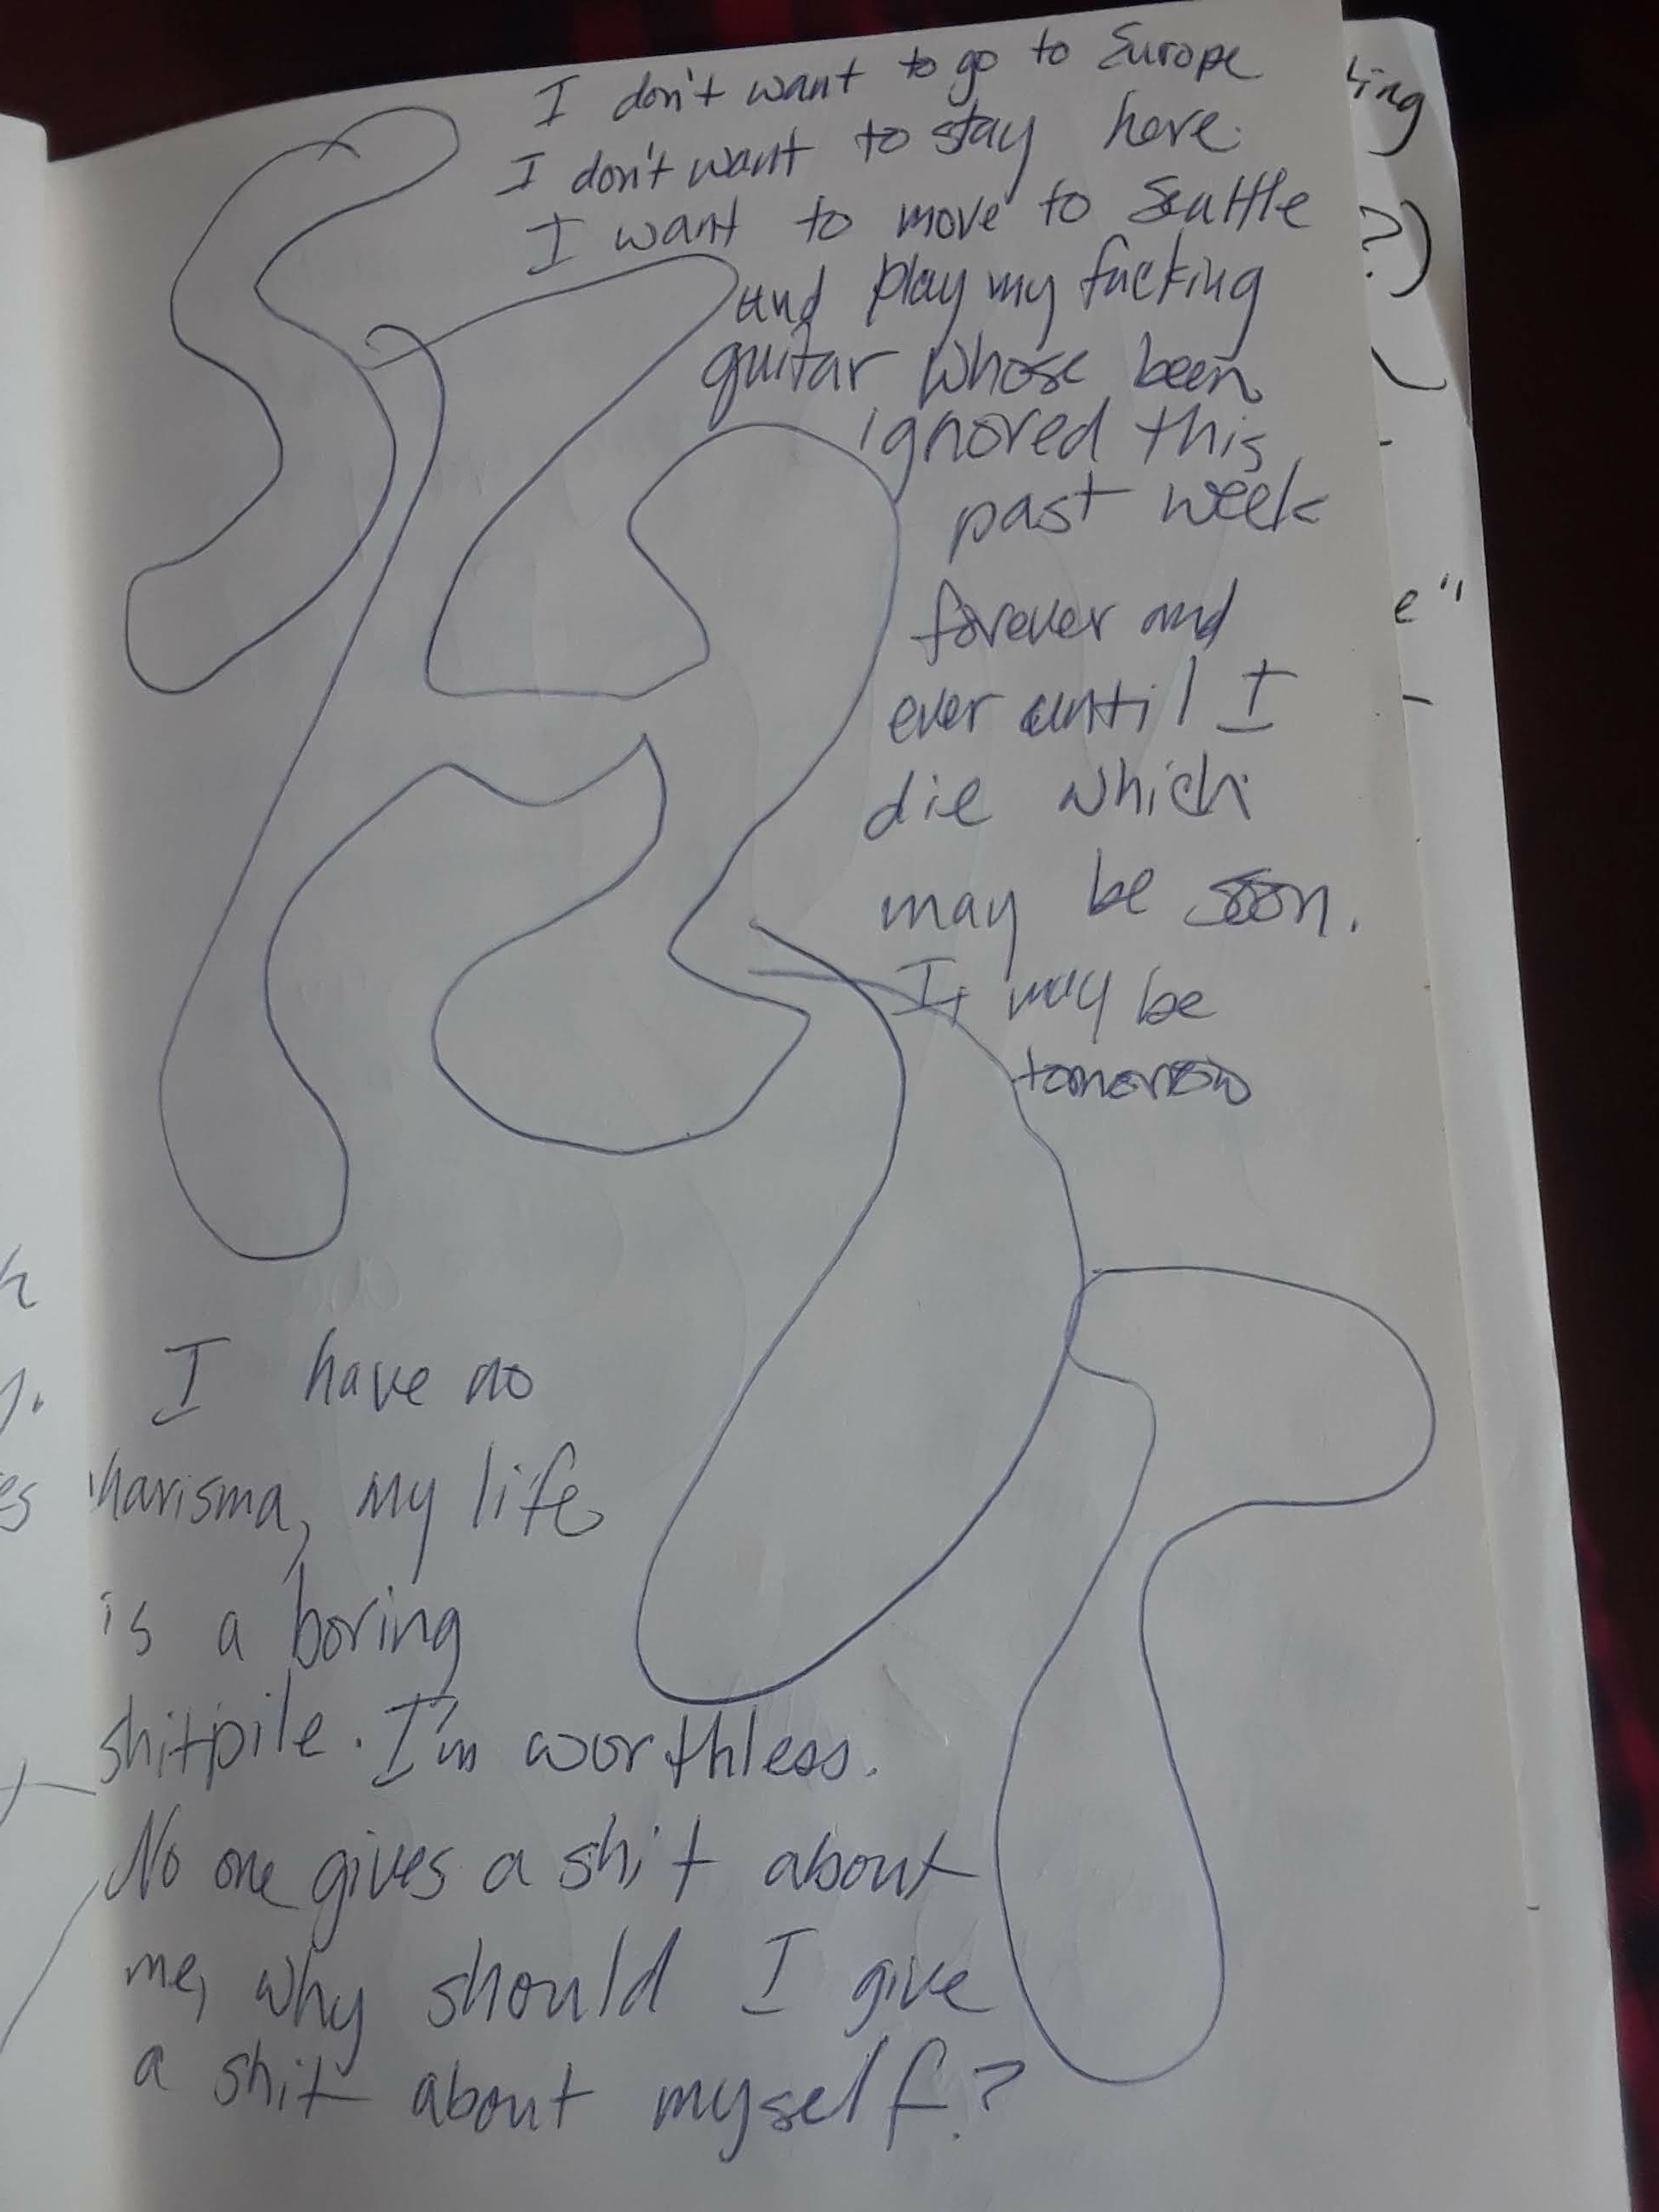 I don't want to go to Europe
I don't want to stay here.
I want to move to Seattle
and play my fucking
guitar whose been
ignored this
past week
forever and
ever until I
die which
may be soon.
It may be
tomorrow
I have no
charisma, my life
is a boring
shitpile. I'm worthless.
No one gives a shit about
me, why should I give
a shit about myself?